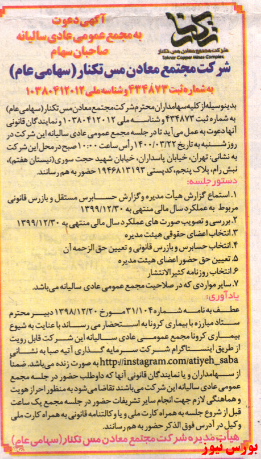 تکنار
شرکت مجتمع معادن مس تکنار
Taknar Copper Mines Complex
آگهی دعوت
به مجمع عمومی عادی سالیانه
صاحبان سهام
شرکت مجتمع معادن مس تکنار (سهامی عام)
به شماره ثبت ۴۳۴۸۷۳ و شناسه ملی ۱۰۳۸۰۴۱۲۰۱۲
بدینوسیله از کلیه سهامداران محترم شرکت مجتمع معادن مس تکنار (سهامی عام)
به شماره ثبت ۴۳۴۸۷۳ و شناسه ملی ۱۰۳۸۰۴۱۲۰۱۲ و نمایندگان قانونی
آنها دعوت به عمل می‌آید تا در جلسه مجمع عمومی عادی سالیانه این شرکت در
روز شنبه به تاریخ ۱۴۰۰/۰۳/۲۲ رأس ساعت ۱۰:۰۰ صبح در محل این شرکت
به نشانی: تهران، خیابان پاسداران، خیابان شهید حجت سوری (نیستان هفتم)،
نبش رام، پلاک پنجم، کدپستی ۱۹۴۶۸۱۳۱۹۳ حضور به هم رسانند.
دستور جلسه:
۱. استماع گزارش هیأت مدیره و گزارش حسابرس مستقل و بازرس قانونی
مربوط به عملکرد سال مالی منتهی به ۱۳۹۹/۱۲/۳۰
۲. بررسی و تصویب صورت های عملکرد سال مالی منتهی به ۱۳۹۹/۱۲/۳۰
۳. انتخاب اعضای حقوقی هیئت مدیره
۴. انتخاب حسابرس و بازرس قانونی و تعیین حق الزحمه آن
۵. تعیین حق حضور اعضای هیئت مدیره
۶. انتخاب روزنامه کثیرالانتشار
۷. سایر مواردی که در صلاحیت مجمع عمومی عادی سالیانه می‌باشد.
یادآوری:
عطف به نامه شماره ۳۱/۱۰۴ مورخ ۱۳۹۸/۱۲/۲۰ دبیر محترم
ستاد مبارزه با بیماری کرونا به استحضار می رساند با عنایت به شیوع
بیماری کرونا مجمع عمومی عادی سالیانه این شرکت قابل رویت
از طریق اینستاگرام شرکت سرمایه گذاری آتیه صبا به نشانی
http://instagram.com/atiyeh_saba به صورت زنده می باشد. ضمناً
از سهامداران و یا نمایندگان قانونی آنها که داوطلب حضور در جلسه مجمع
عمومی عادی سالیانه این شرکت می باشند تقاضا می شود به منظور احراز هویت
و هماهنگی لازم جهت انجام سایر تشریفات حضور در جلسه مجمع یک ساعت
قبل از شروع جلسه به همراه کارت ملی و یا وکالتنامه قانونی به همراه کارت ملی
وکیل در آدرس فوق الذکر حضور به هم رسانند.
هیأت مدیره شرکت مجتمع معادن مس تکنار (سهامی عام)
بورس نیوز